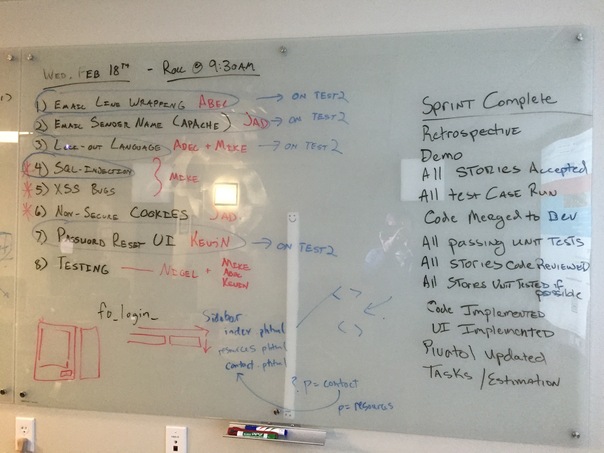 Wed, Feb 18TH - Roll @ 9:30AM
1) Email Line Wrapping Abel → on test2
2) Email Sender Name (Apache) Jad → on test2
3) Lock-out Language Abel + Mike → on test2
* 4) SQL-Injection
} Mike
* 5) XSS Bugs
* 6) Non-Secure Cookies Jad
7) Password Reset UI Kevin → on test2
8) Testing — Nigel + Mike
Abel
Kevin
fo_login_
Sidebar
index.phtml
resources.phtml
contact.phtml
< >
< >
? p=contact
p=resources
Sprint Complete
Retrospective
Demo
All stories Accepted
All test Case Run
Code Merged to Dev
All passing unit tests
All stories Code Reviewed
All stories Unit Tested if
possible
Code Implemented
UI Implemented
Pivotal Updated
Tasks/Estimation